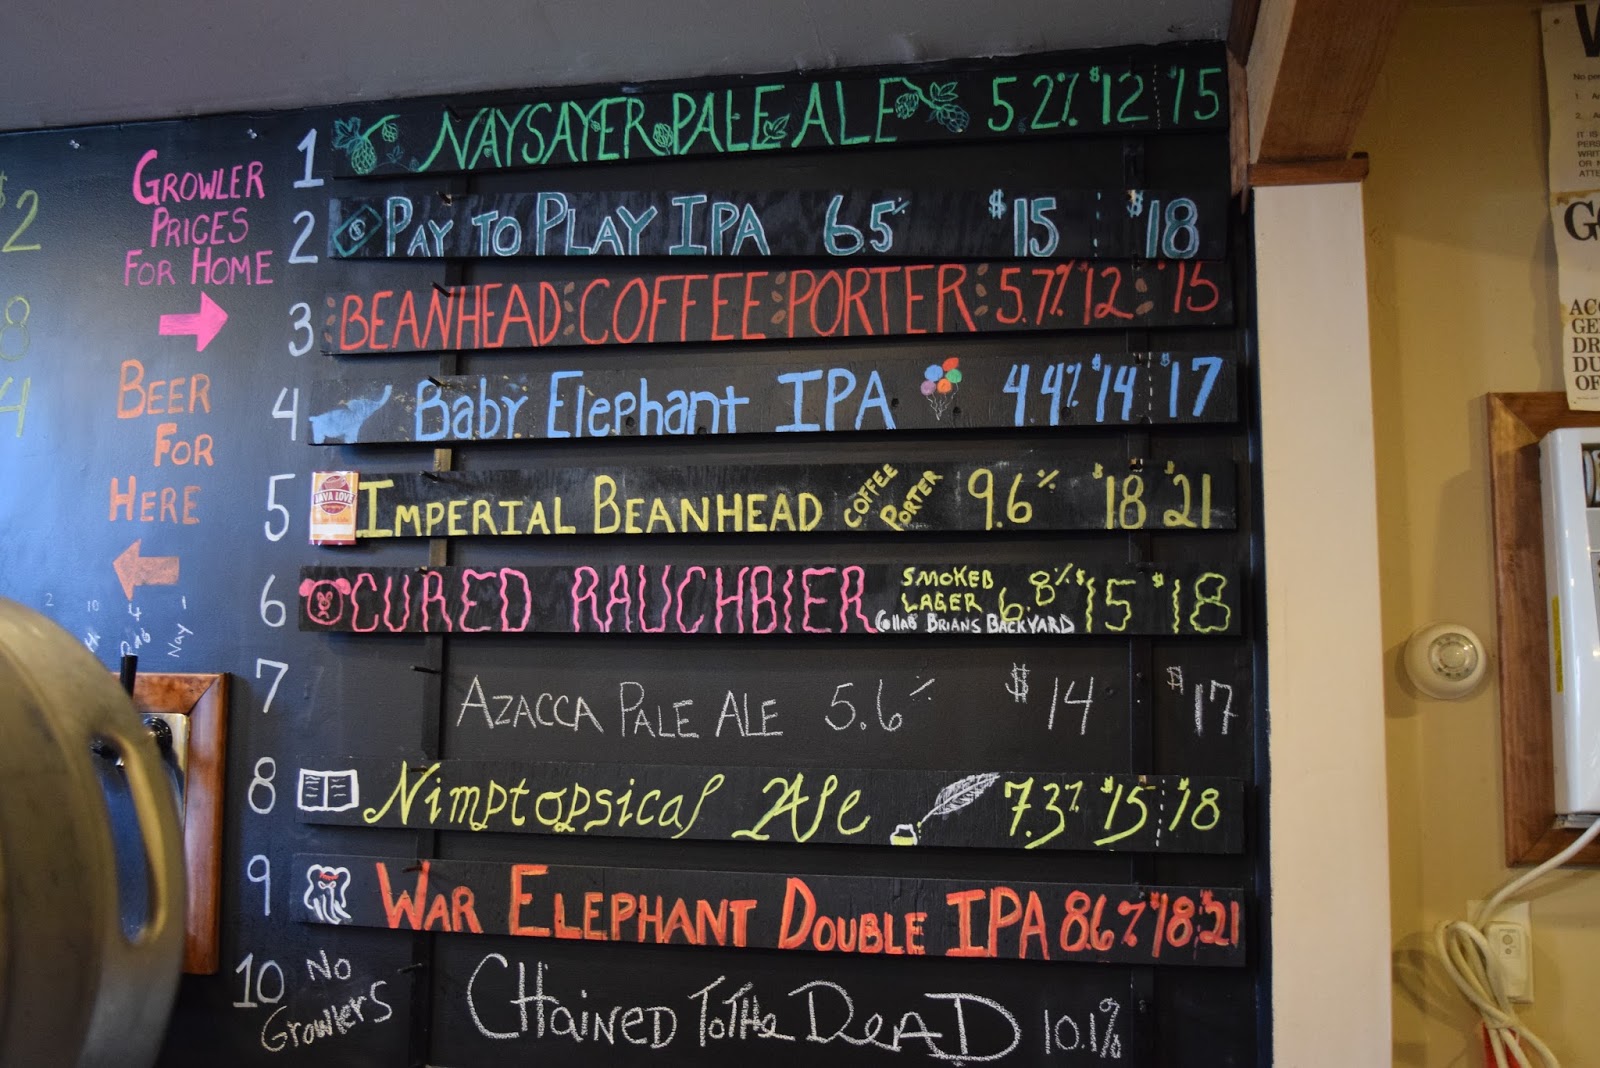 $2
8
4
GROWLER
PRICES
FOR HOME
BEER
FOR
HERE
1 NAYSAYER PALE ALE 5.2% $12 $15
2 PAY TO PLAY IPA 6.5% $15 $18
3 BEANHEAD COFFEE PORTER 5.7% $12 $15
4 Baby Elephant IPA 4.4% $14 $17
5 JAVA LOVE IMPERIAL BEANHEAD COFFEE PORTER 9.6% $18 $21
6 CURED RAUCHBIER SMOKED LAGER 6.8% $15 $18
Collab BRIANS BACKYARD
7 AZACCA PALE ALE 5.6% $14 $17
8 Nimptopsical Ale 7.3% $15 $18
9 WAR ELEPHANT DOUBLE IPA 8.6% $18 $21
10 NO GROWLERS CHAINED TO THE DEAD 10.1%
2 10 4 1
Nay